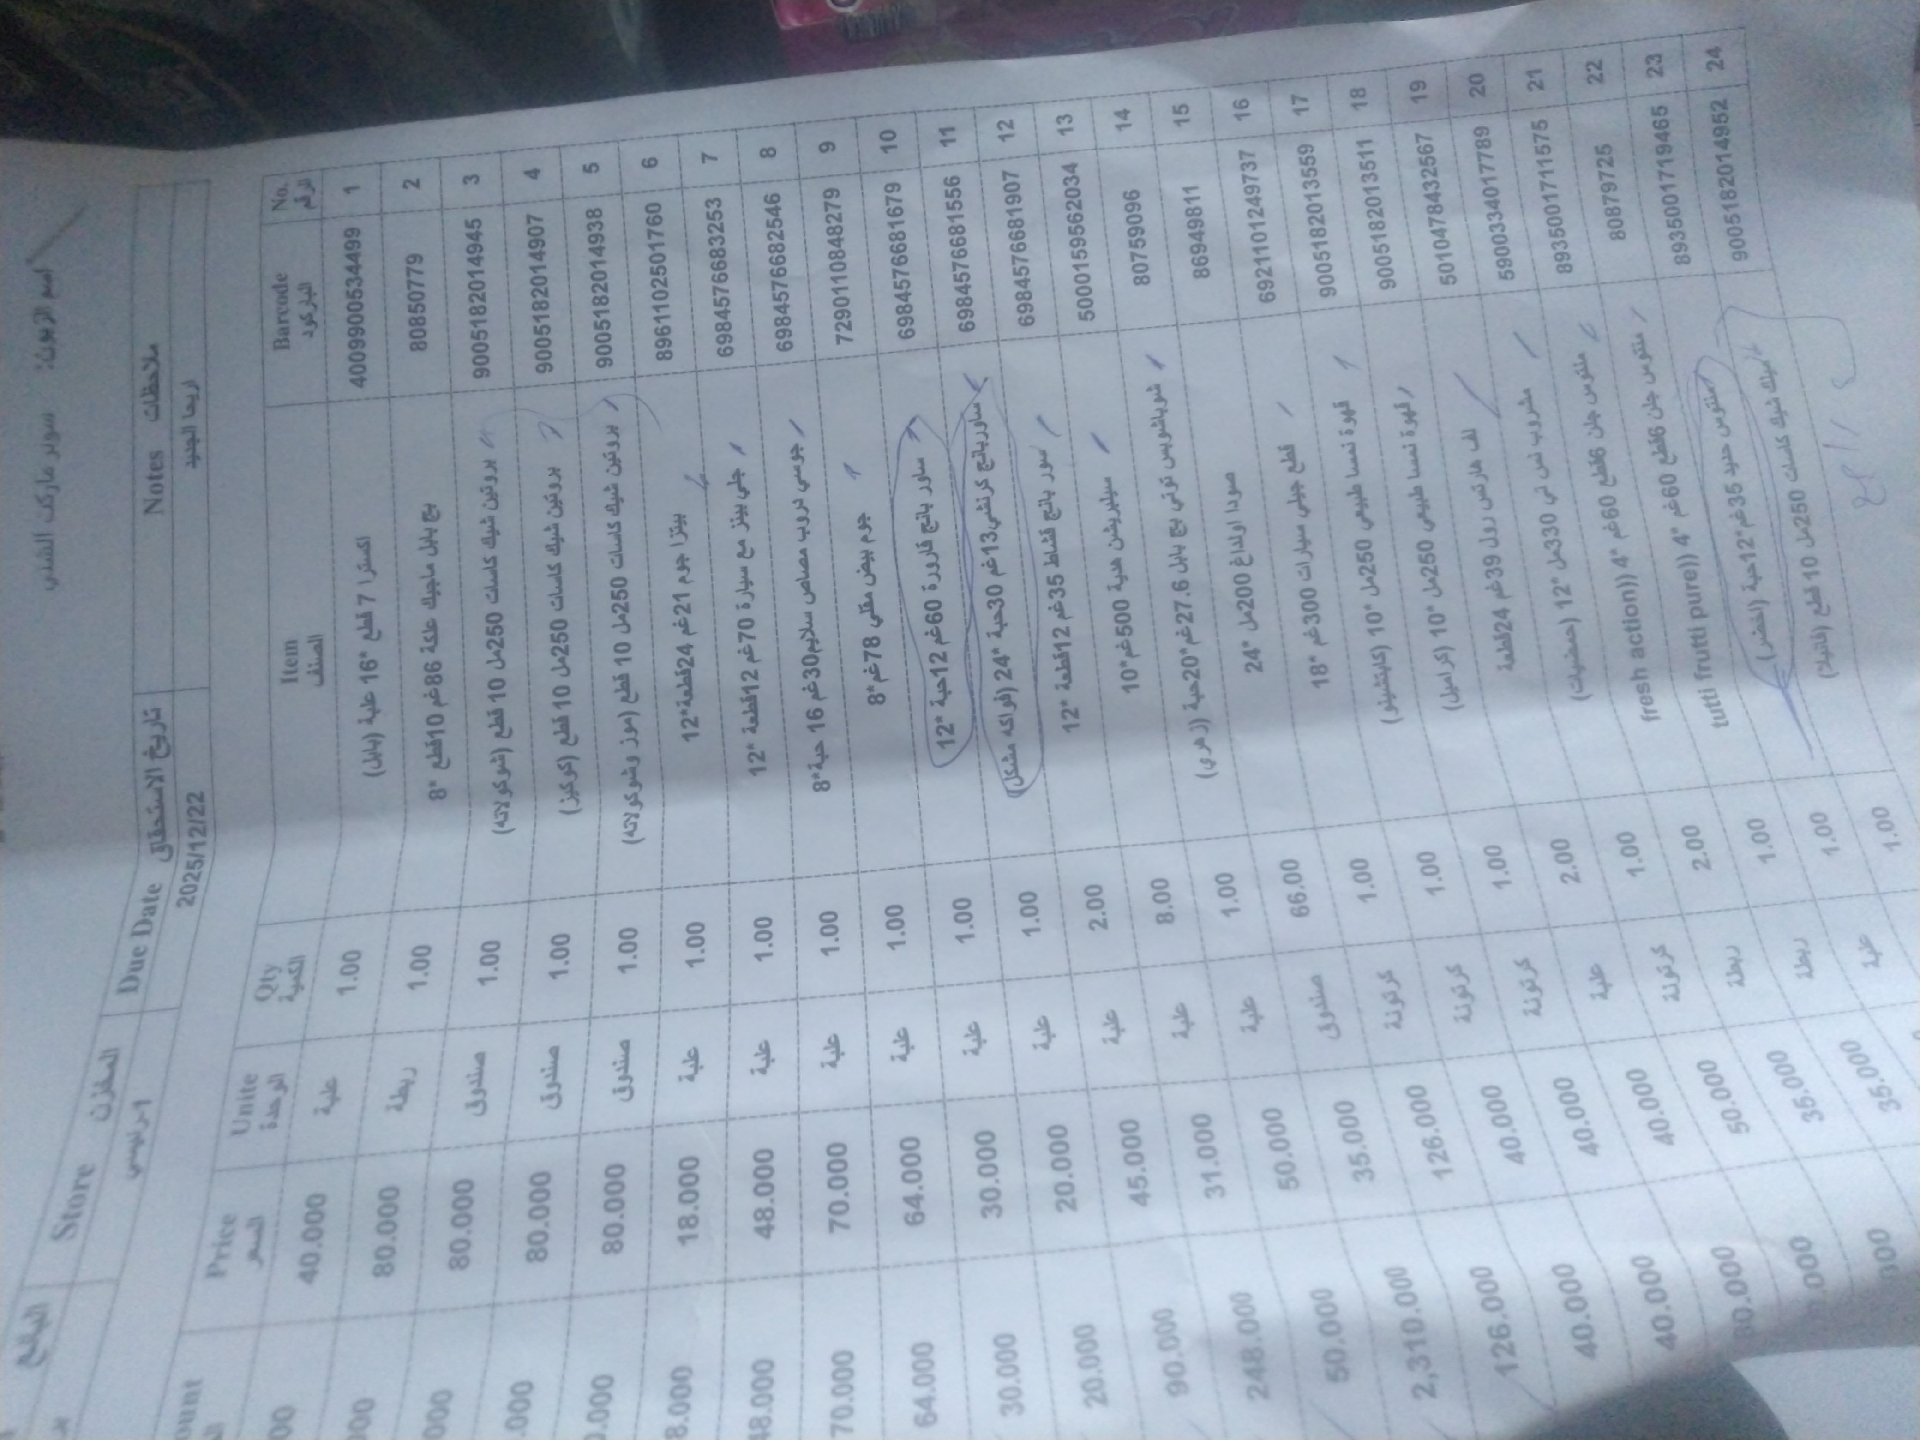 اسم الزبون: سوبر ماركت الشلبي
البائع
Store المخزن Due Date تاريخ الاستحقاق Notes ملاحظات
2025/12/22 اريحا الجديد
No. Barcode Item Qty Unite Price ount
الرقم الباركود الصنف الكمية الوحدة السعر
1 4009900534499 اكسترا 7 قطع *16 علبة (بابل) 1.00 علبة 40.000 00
2 80850779 بج بابل ماجيك علكة 86غم 10قطع *8 1.00 ربطة 80.000 00
3 9005182014945 بروتين شيك كاسات 250مل 10 قطع (شوكولاته) 1.00 صندوق 80.000 000
4 9005182014907 بروتين شيك كاسات 250مل 10 قطع (كوكيز) 1.00 صندوق 80.000 .000
5 9005182014938 بروتين شيك كاسات 250مل 10 قطع (موز وشوكولاته) 1.00 صندوق 80.000 0.000
6 8961102501760 بيتزا جوم 21غم 24قطعة*12 1.00 علبة 18.000 8.000
7 6984576683253 جلي بينز مع سيارة 70غم 12قطعة *12 1.00 علبة 48.000 48.000
8 6984576682546 جوسي دروب مصاص سلايم30غم 16 حبة*8 1.00 علبة 70.000 70.000
9 7290110848279 جوم بيض مقلي 78غم*8 1.00 علبة 64.000 64.000
10 6984576681679 ساور بانج قارورة 60غم 12حبة *12 1.00 علبة 30.000 30.000
11 6984576681556 ساور بانج كرنشي13غم 30حبة *24 (فواكه مشكل) 1.00 علبة 20.000 20.000
12 6984576681907 سور بانج قشاط 35غم 12قطعة *12 2.00 علبة 45.000 90.000
13 5000159562034 سيلبريشن هدية 500غم*10 8.00 علبة 31.000 248.000
14 80759096 شوباشوبس توتي بج بابل 27.6غم*20حبة (زهري) 1.00 علبة 50.000 50.000
15 86949811 صودا اولداغ 200مل *24 66.00 صندوق 35.000 2,310.000
16 6921101249737 قطع جيلي سيارات 300غم *18 1.00 كرتونة 126.000 126.000
17 9005182013559 قهوة نمسا طبيعي 250مل *10 (كابتشينو) 1.00 كرتونة 40.000 40.000
18 9005182013511 قهوة نمسا طبيعي 250مل *10 (كراميل) 1.00 كرتونة 40.000 40.000
19 5010478432567 لف هارتس رول 39غم 24قطعة 2.00 علبة 40.000 80.000
20 5900334017789 مشروب نس تي 330مل *12 (حمضيات) 1.00 كرتونة 50.000 .000
21 8935001711575 منتوس جلن 6قطع 60غم *4 ((fresh action 2.00 ربطة 35.000 000
22 80879725 منتوس جلن 6قطع 60غم *4 ((tutti frutti pure 1.00 ربطة 35.000
23 8935001719465 منتوس حديد 35غم*12حبة (اخضر) 1.00 علبة
24 9005182014952 ميلك شيك كاسات 250مل 10 قطع (فانيلا) 1.00